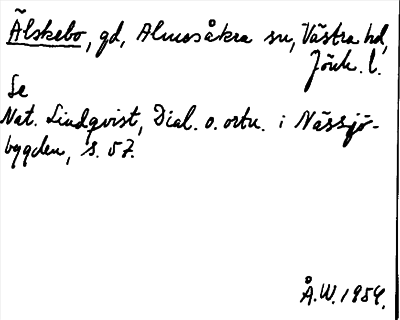 Älskebo, gd, Almesåkra sn, Västra hd,
Jönk. l.
Se
Nat. Lindqvist, Dial. o. ortn. i Nässjö-
bygden, s. 57.
Å.W. 1954.